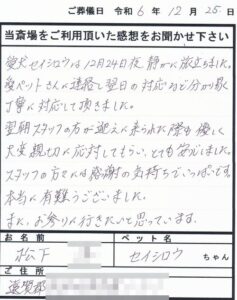 ご葬儀日 令和 6年 12月 25日
当斎場をご利用頂いた感想をお聞かせ下さい
愛犬セイシロウは12月24日夜 静かに旅立ちました。
愛ペットさんに連絡し翌日の対応など分り易く
丁寧に対応して頂きました。
翌朝スタッフの方が迎えに来られた際も優しく
大変親切に応対してもらい、とても安心しました。
スタッフの方々には感謝の気持ちでいっぱいです。
本当に有難うございました。
また、お参りに行きたいと思っています。
お名前 ペット名
松下 セイシロウ ちゃん
ご住所
遠賀郡